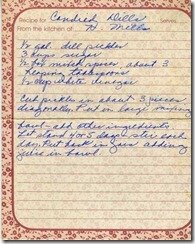 Recipe for Candied Dills Serves
From the kitchen of D Mills
½ gal. dill pickles
3 cups sugar
½ box mixed spices about 3
heaping tablespoons
½ cup white vinegar
Cut pickles in about 3 pieces
diagonally. Put in large mixing
bowl add other ingredients
Let stand 4 or 5 days stir each
day. Put back in jars adding
juice in bowl